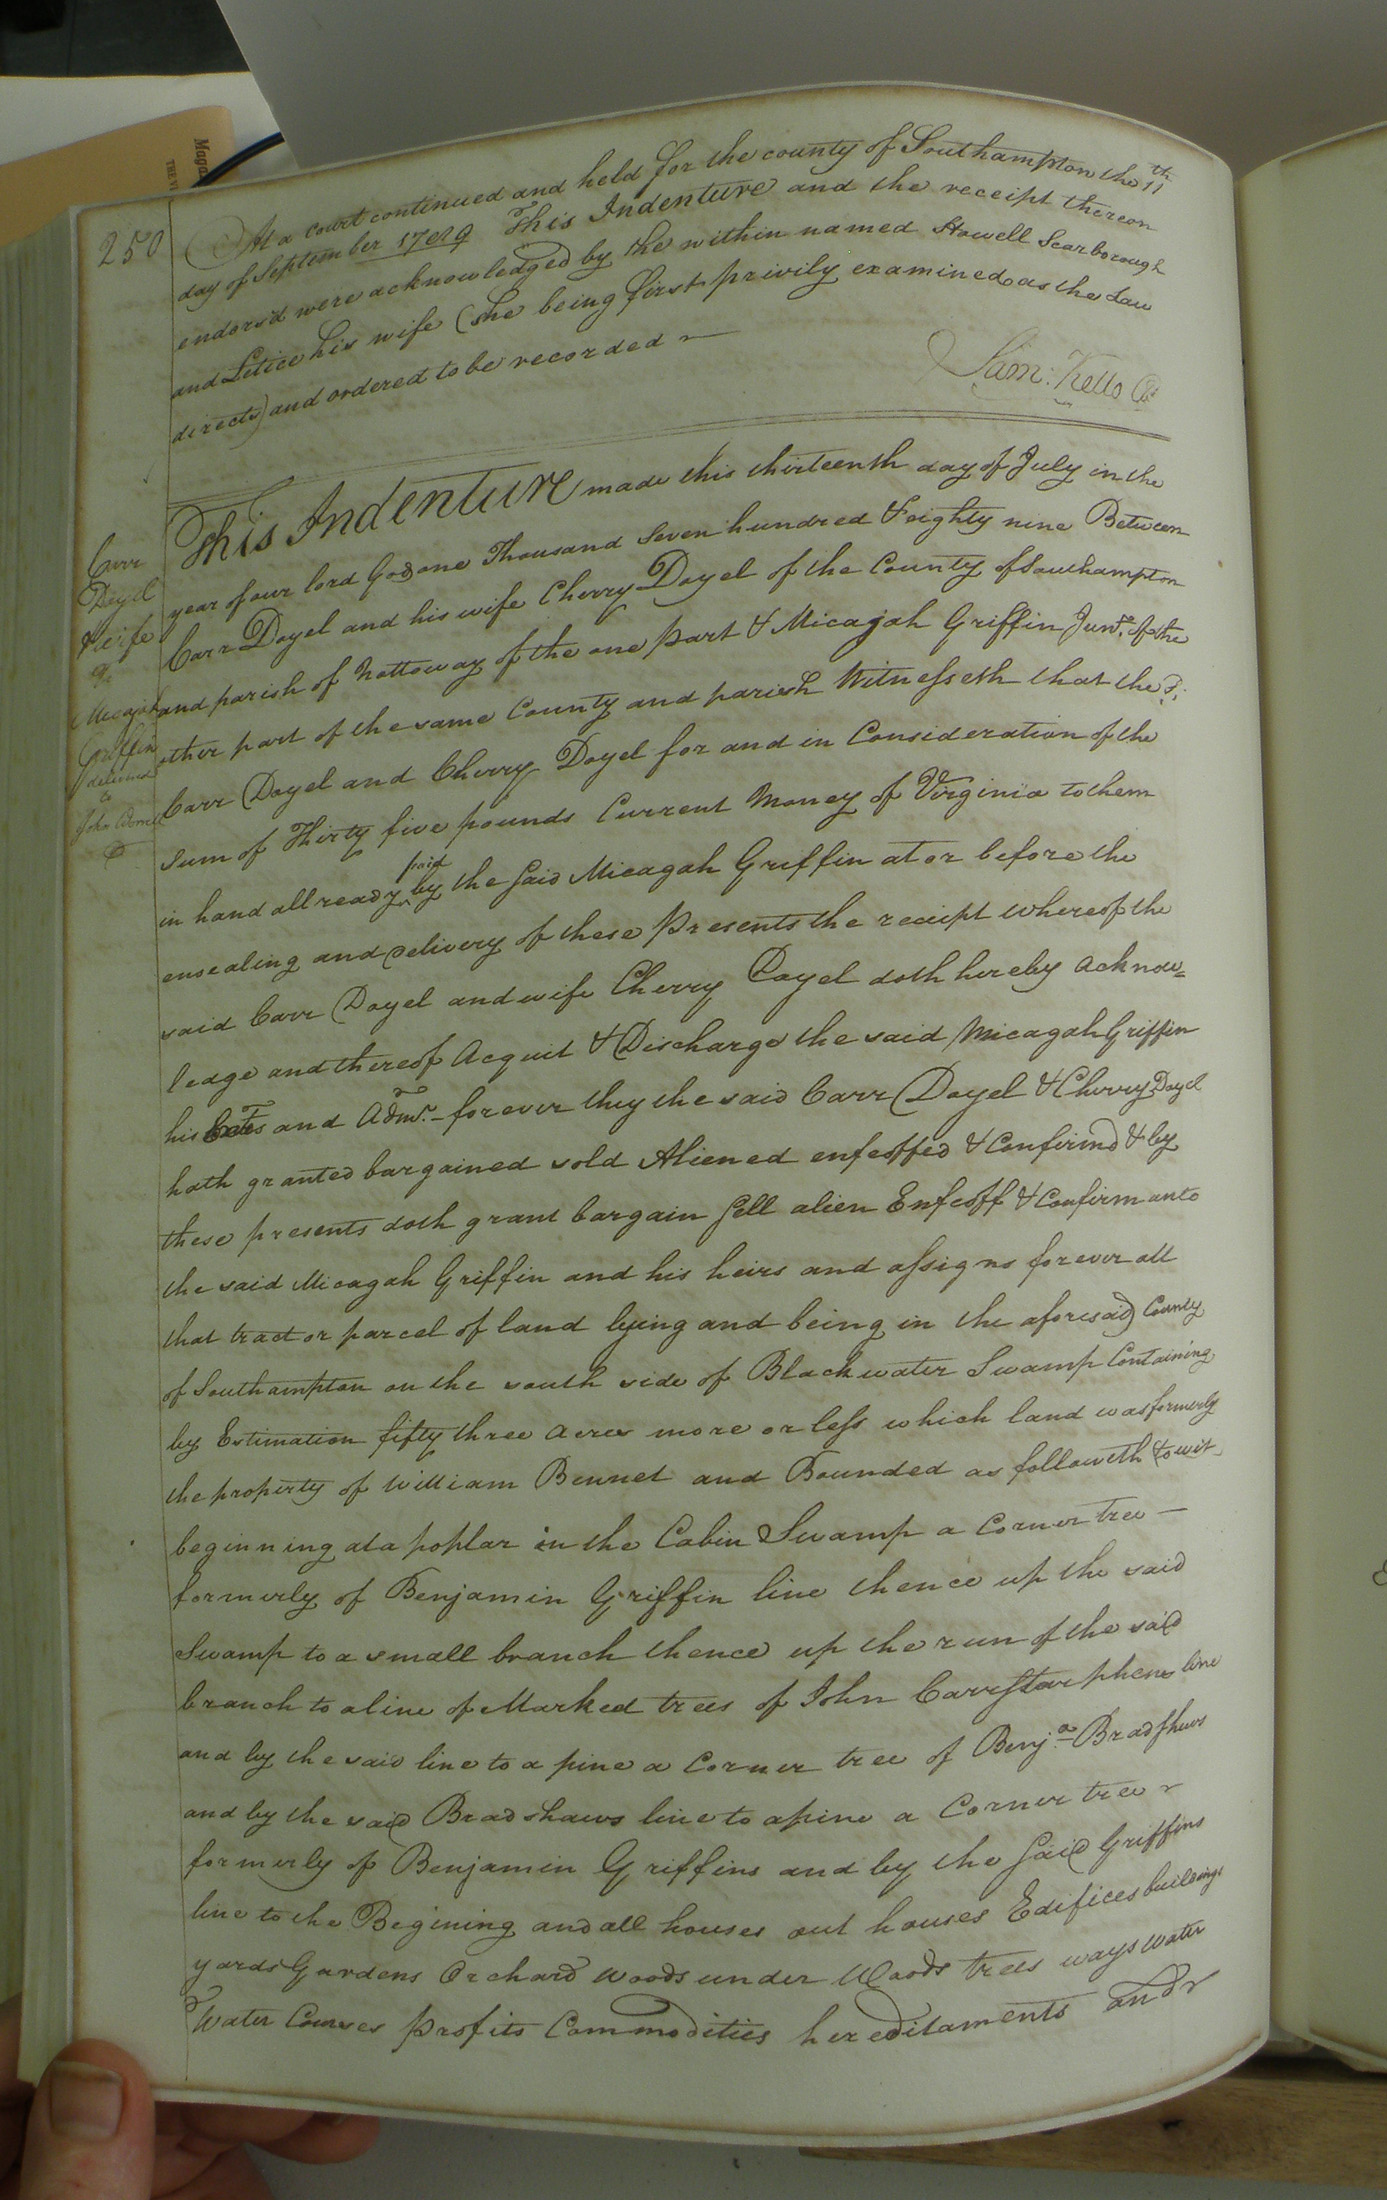 Maga
THE V
250
At a court continued and held for the county of Southampton the 11th
day of September 1789 This Indenture and the receipt thereon
endors'd were acknowledged by the within named Howell Scarborough
and Letice his wife (she being first privily examined as the Law
directs) and ordered to be recorded
Sam: Kello
Carr
Doyel
& wife
Micajah
Griffin
delivered
to
John
This Indenture made this thirteenth day of July in the
year of our lord God one Thousand Seven hundred & eighty nine Between
Carr Doyel and his wife Cherry Doyel of the County of Southampton
and parish of Nottoway of the one part & Micajah Griffin Junr. of the
other part of the same County and parish Witnesseth that the sd.
Carr Doyel and Cherry Doyel for and in Consideration of the
Sum of Thirty five pounds Current Money of Virginia to them
in hand allready paid by the said Micagah Griffin at or before the
ensealing and delivery of these Presents the receipt whereof the
said Carr Doyel and wife Cherry Doyel doth hereby acknow=
ledge and thereof Acquit & Discharge the said Micagah Griffin
his and Admrs. forever they the said Carr Doyel & Cherry Doyel
hath granted bargained sold Aliened enfeoffed & Confirmd & by
these presents doth grant bargain sell alien Enfeoff & Confirm unto
the said Micagah Griffin and his heirs and assigns forever all
that tract or parcel of land lying and being in the aforesaid County
of Southampton on the south side of Blackwater Swamp Containing
by Estimation fifty three acres more or less which land was formerly
the property of William Bennet and Bounded as followeth to wit
beginning at a poplar in the Cabin Swamp a Corner tree —
formerly of Benjamin Griffin line thence up the said
Swamp to a small branch thence up the run of the said
branch to a line of Marked trees of John Carrstarphens line
and by the said line to a pine a Corner tree of Benja. Bradshaws
and by the said Bradshaws line to a pine a Corner tree
formerly of Benjamin Griffins and by the said Griffins
line to the Begining and all houses out houses Edifices buildings
yards Gardens Orchard woods under Woods trees ways water
& Water Courses Profits Commodities hereditaments and